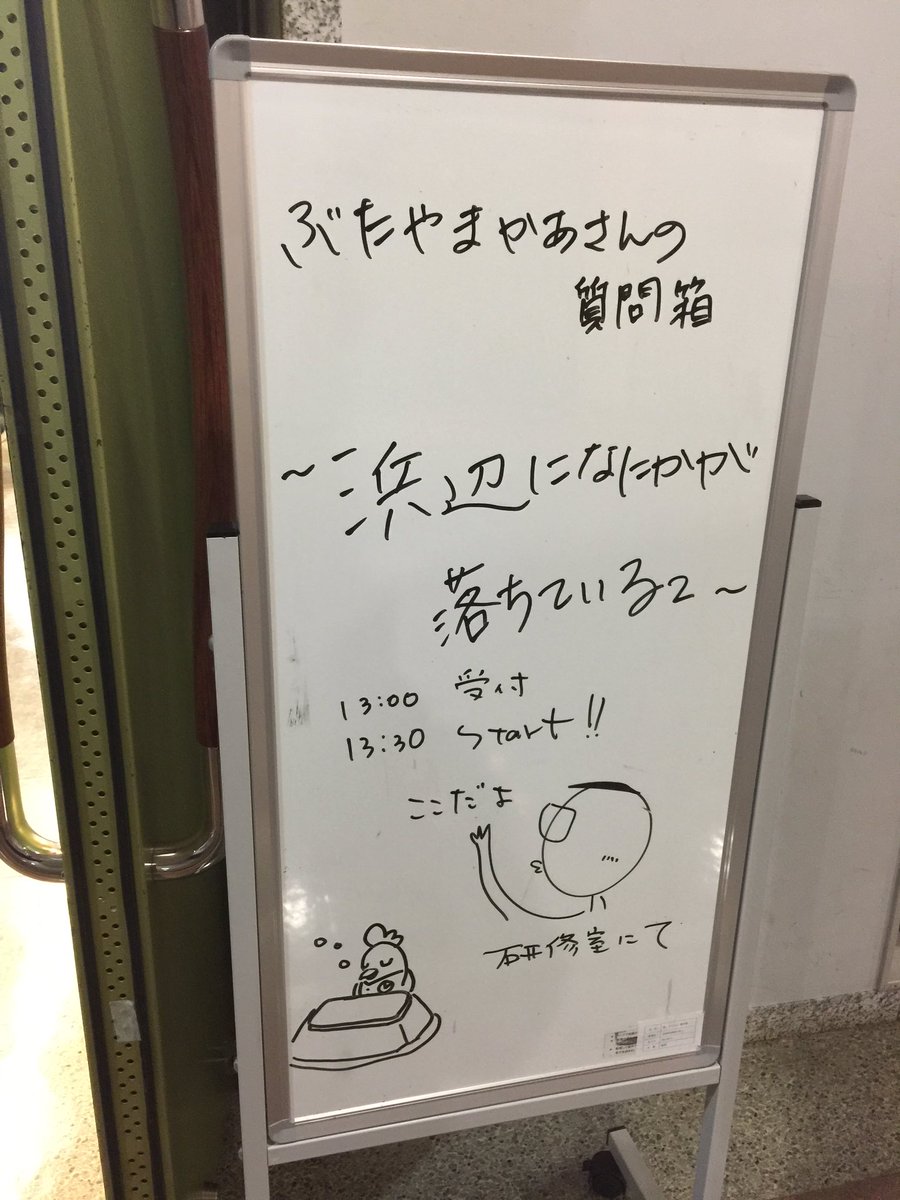 ぶたやまかあさんの
質問箱
～浜辺になにかが
落ちている2～
13:00 受付
13:30 Start!!
ここだよ
研修室にて